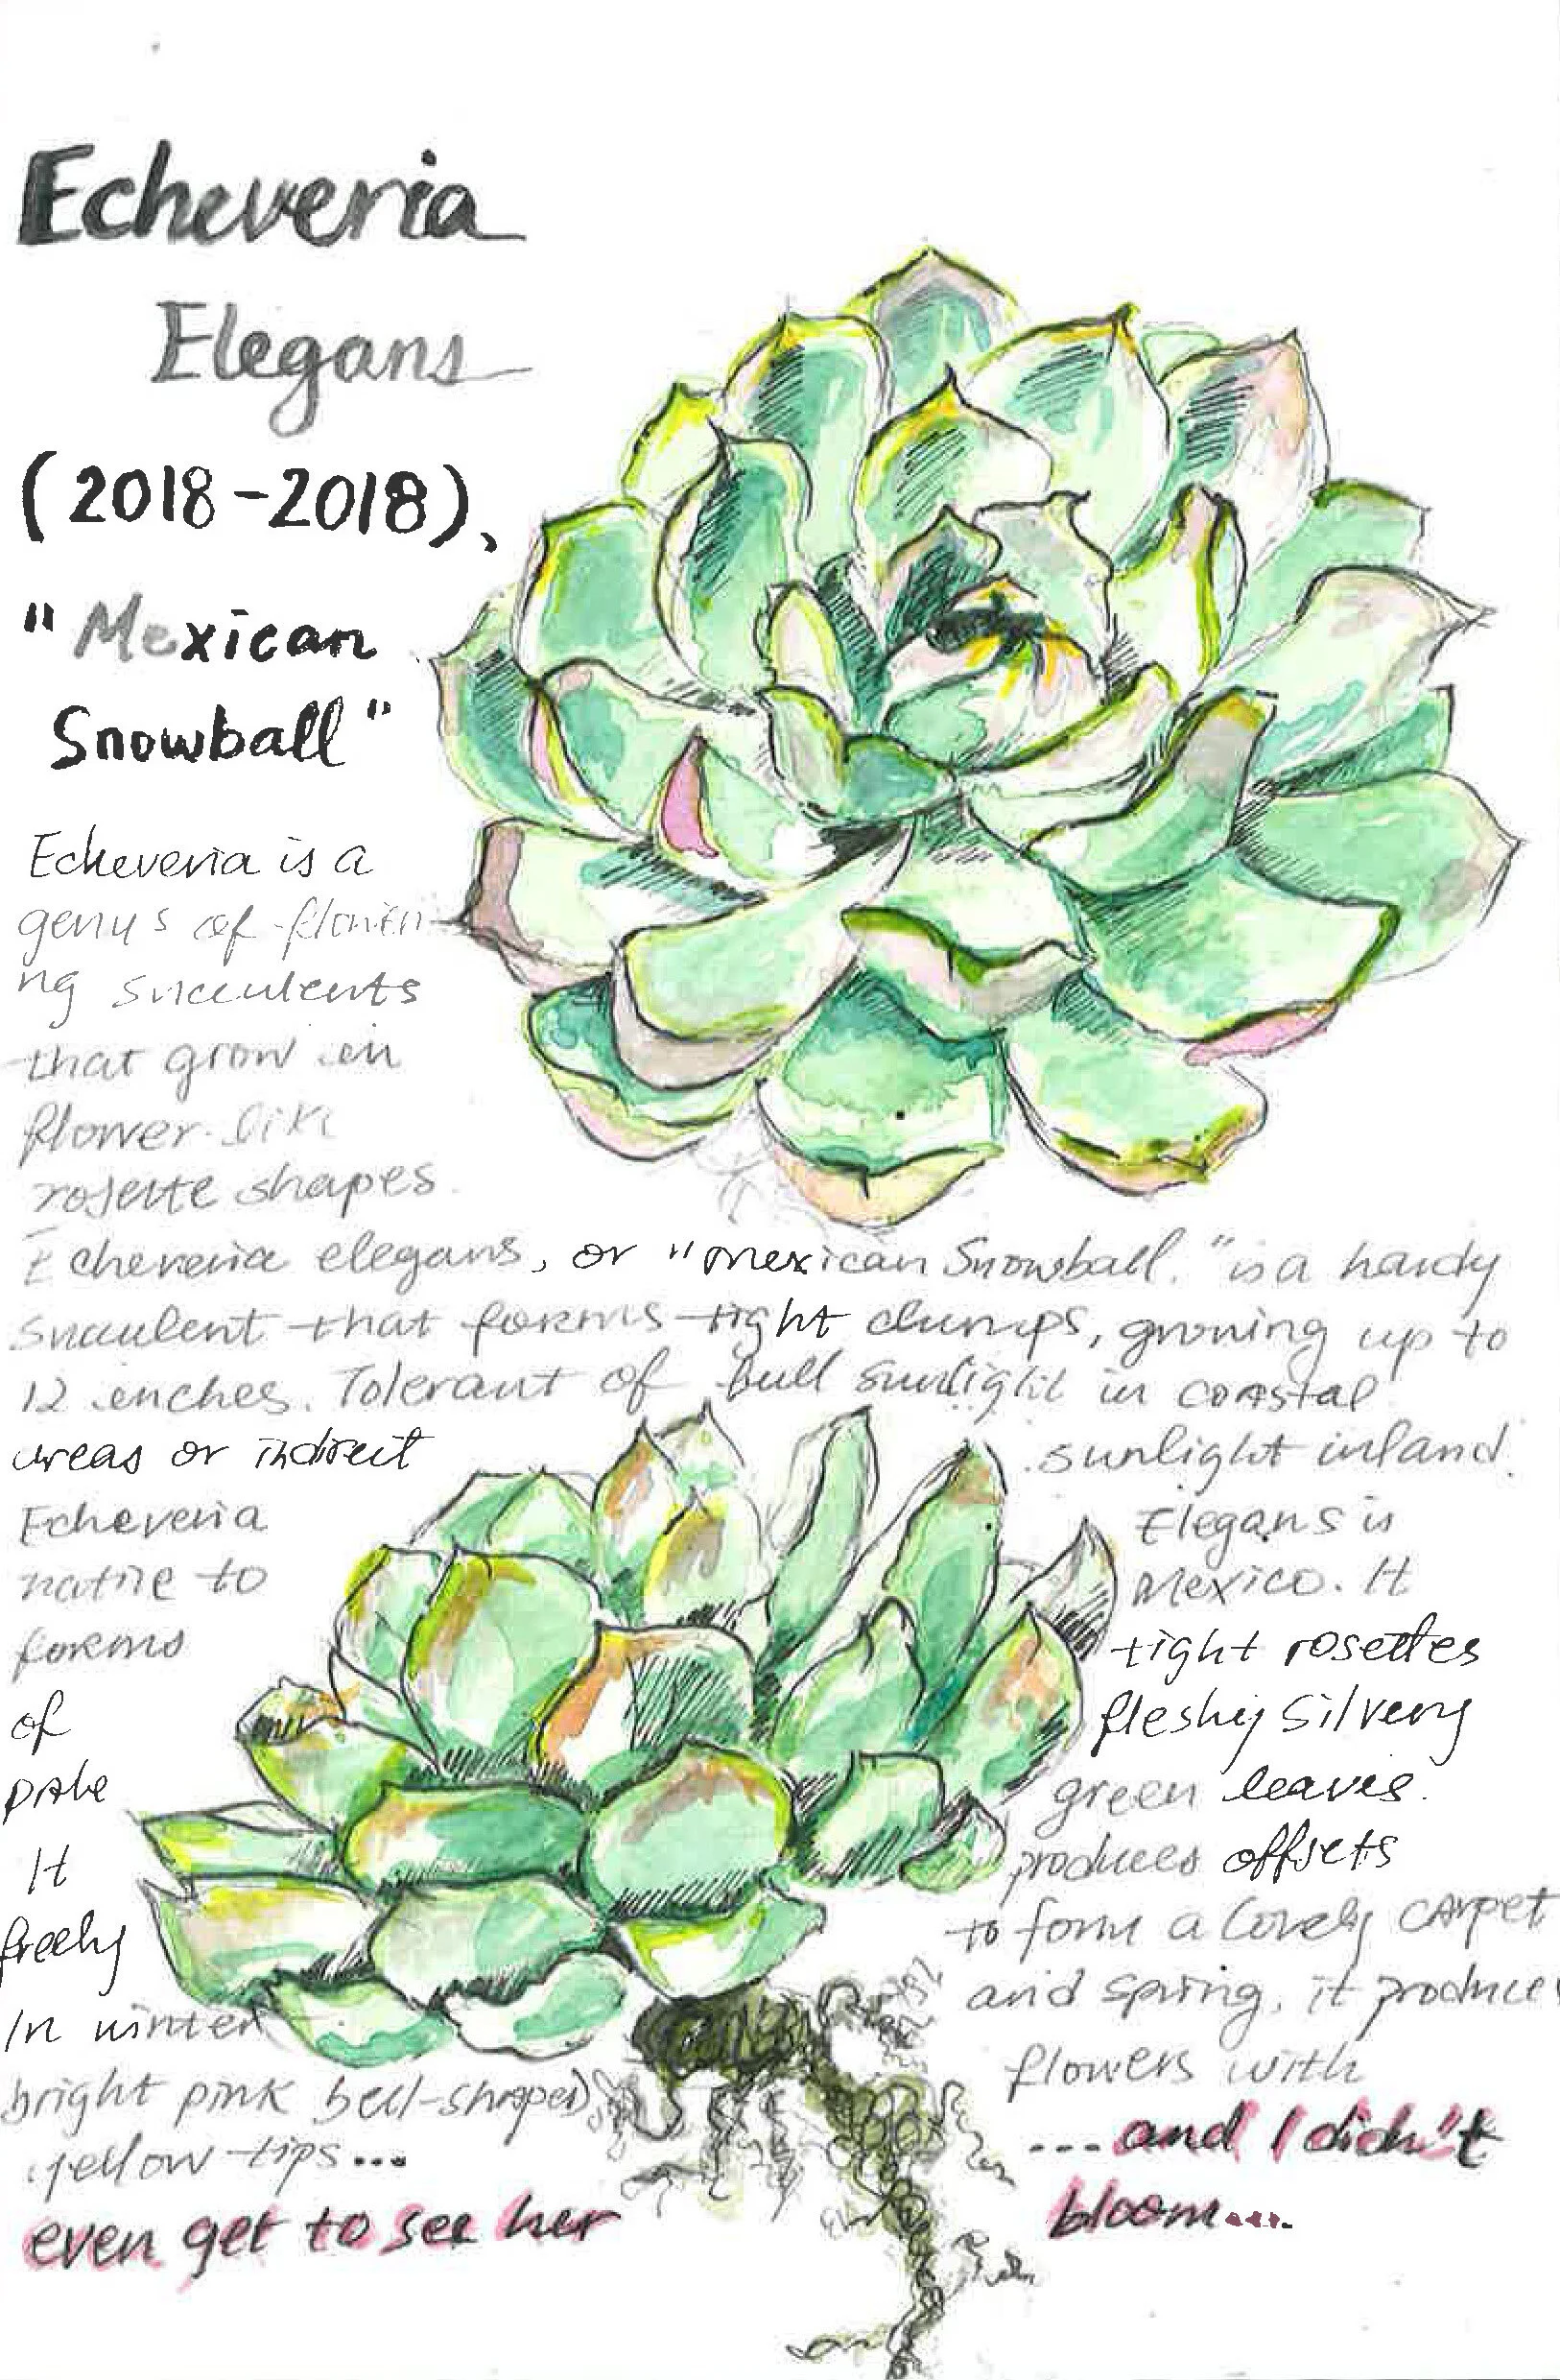 Echeveria
Elegans
(2018-2018),
"Mexican
Snowball"
Echeveria is a
genus of floweri
ng succulents
that grow in
flower-like
rosette shapes.
Echeveria elegans, or "Mexican Snowball." is a hardy
succulent that forms tight clumps, growing up to
12 inches. Tolerant of full sunlight in coastal
areas or indirect sunlight inland.
Echeveria Elegans is
native to Mexico. It
forms tight rosettes
of fleshy silvery
pale green leaves.
It produces offsets
freely to form a lovely carpet
In winter and spring, it produces
bright pink bell-shaped flowers with
yellow tips... ...and I didn't
even get to see her bloom....